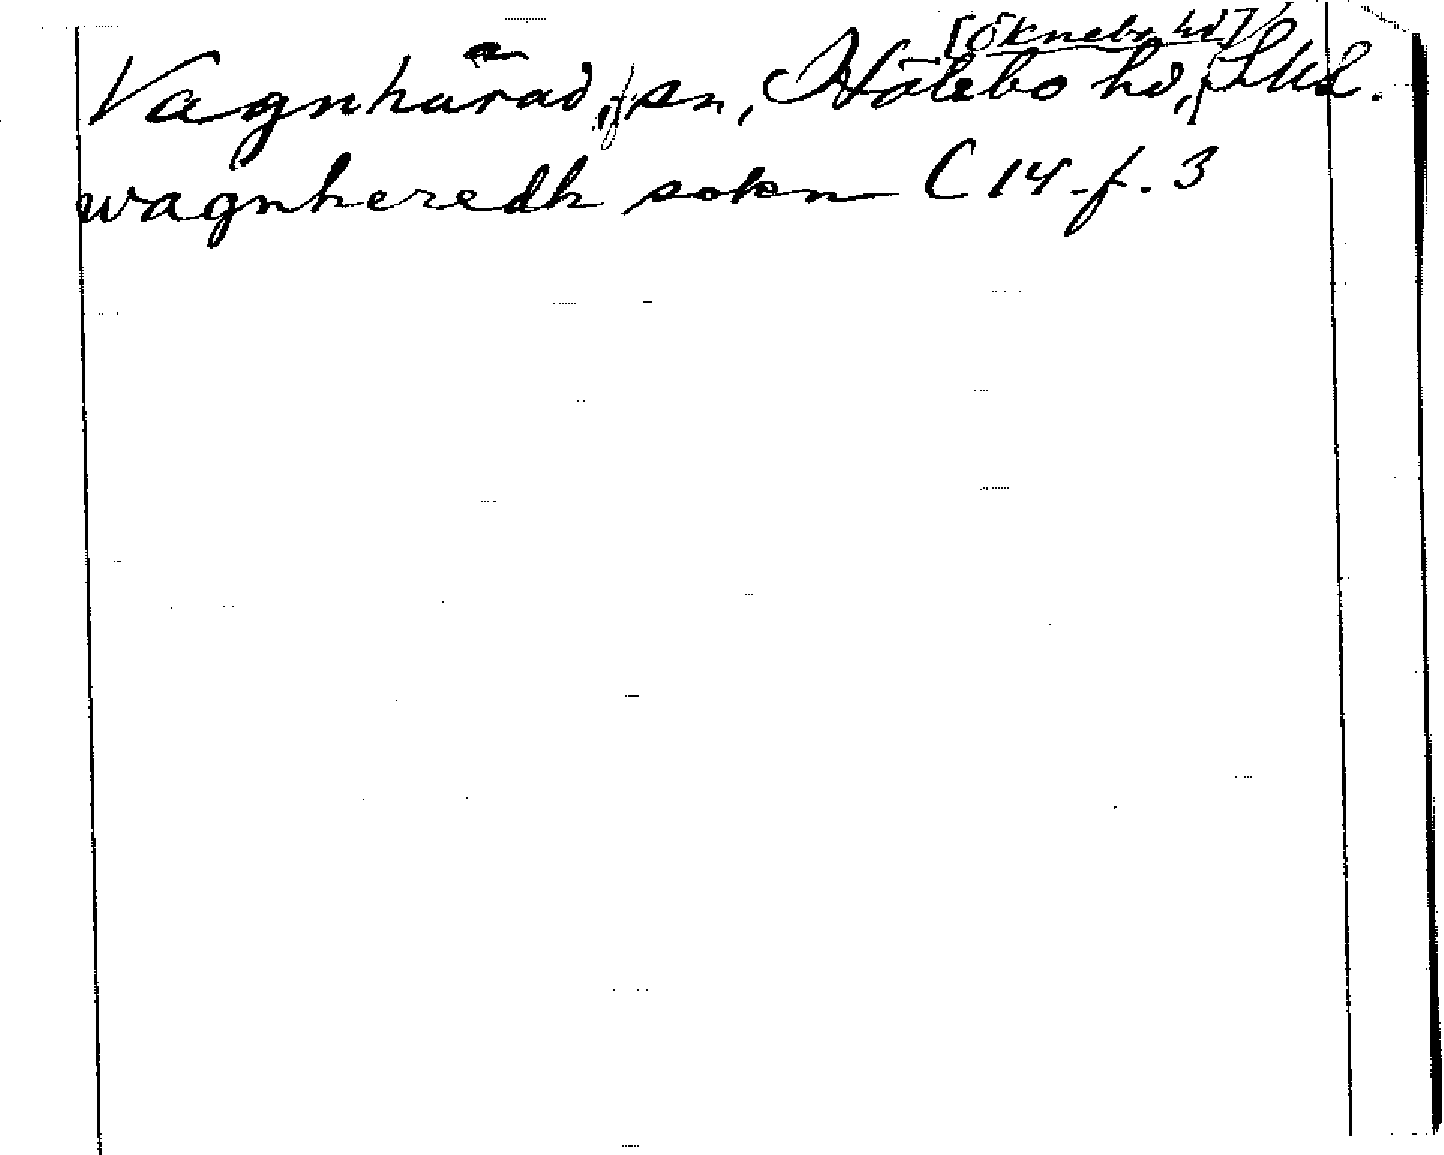 [Öknebo hd]
Vagnhärad, sn, Hölebo hd, Skd.
wagnheredh sokn C 14 f. 3